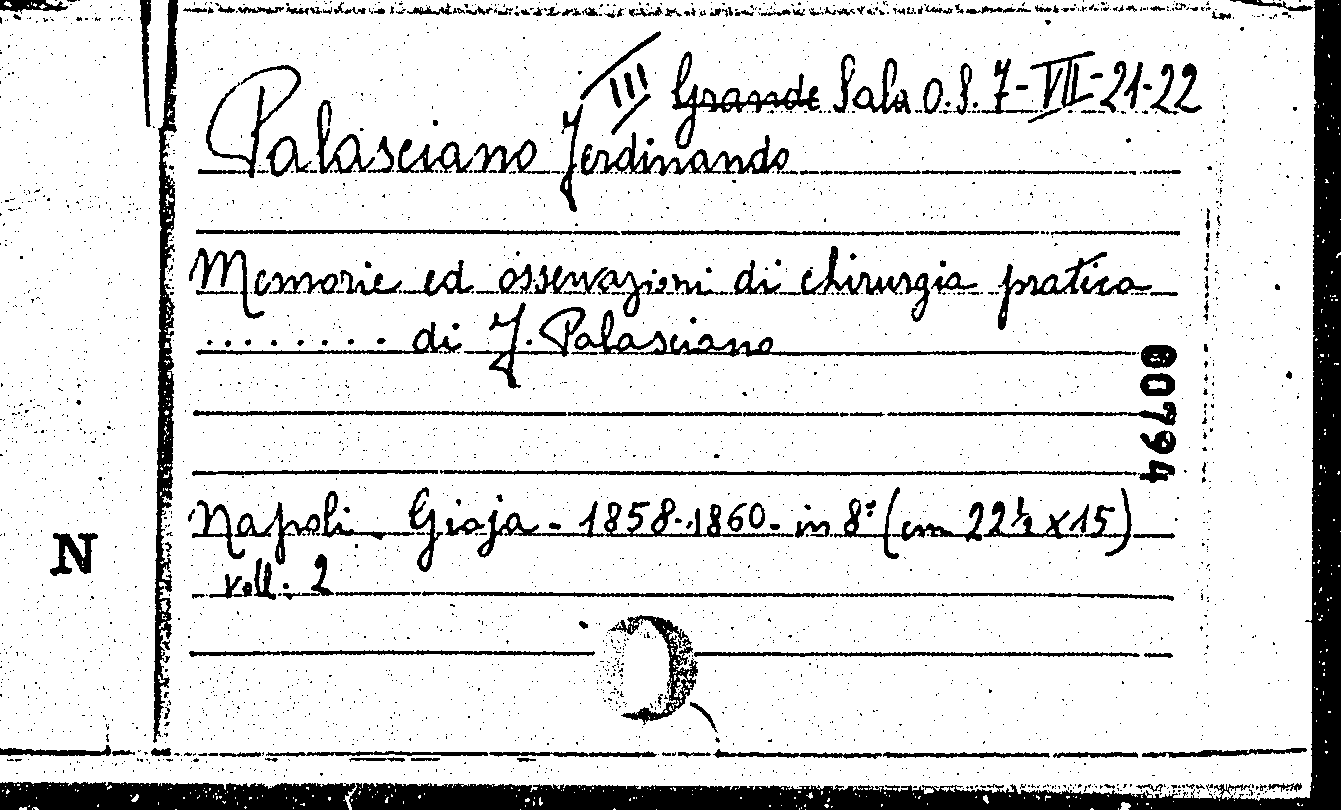 III ~~Grande~~ Sala O.S. 7-VII-21-22
Palasciano Ferdinando
Memorie ed osservazioni di chirurgia pratica
........ di F. Palasciano
00794
Napoli - Gioja - 1858-1860 - in 8° (cm 22½ x 15)
N
voll: 2